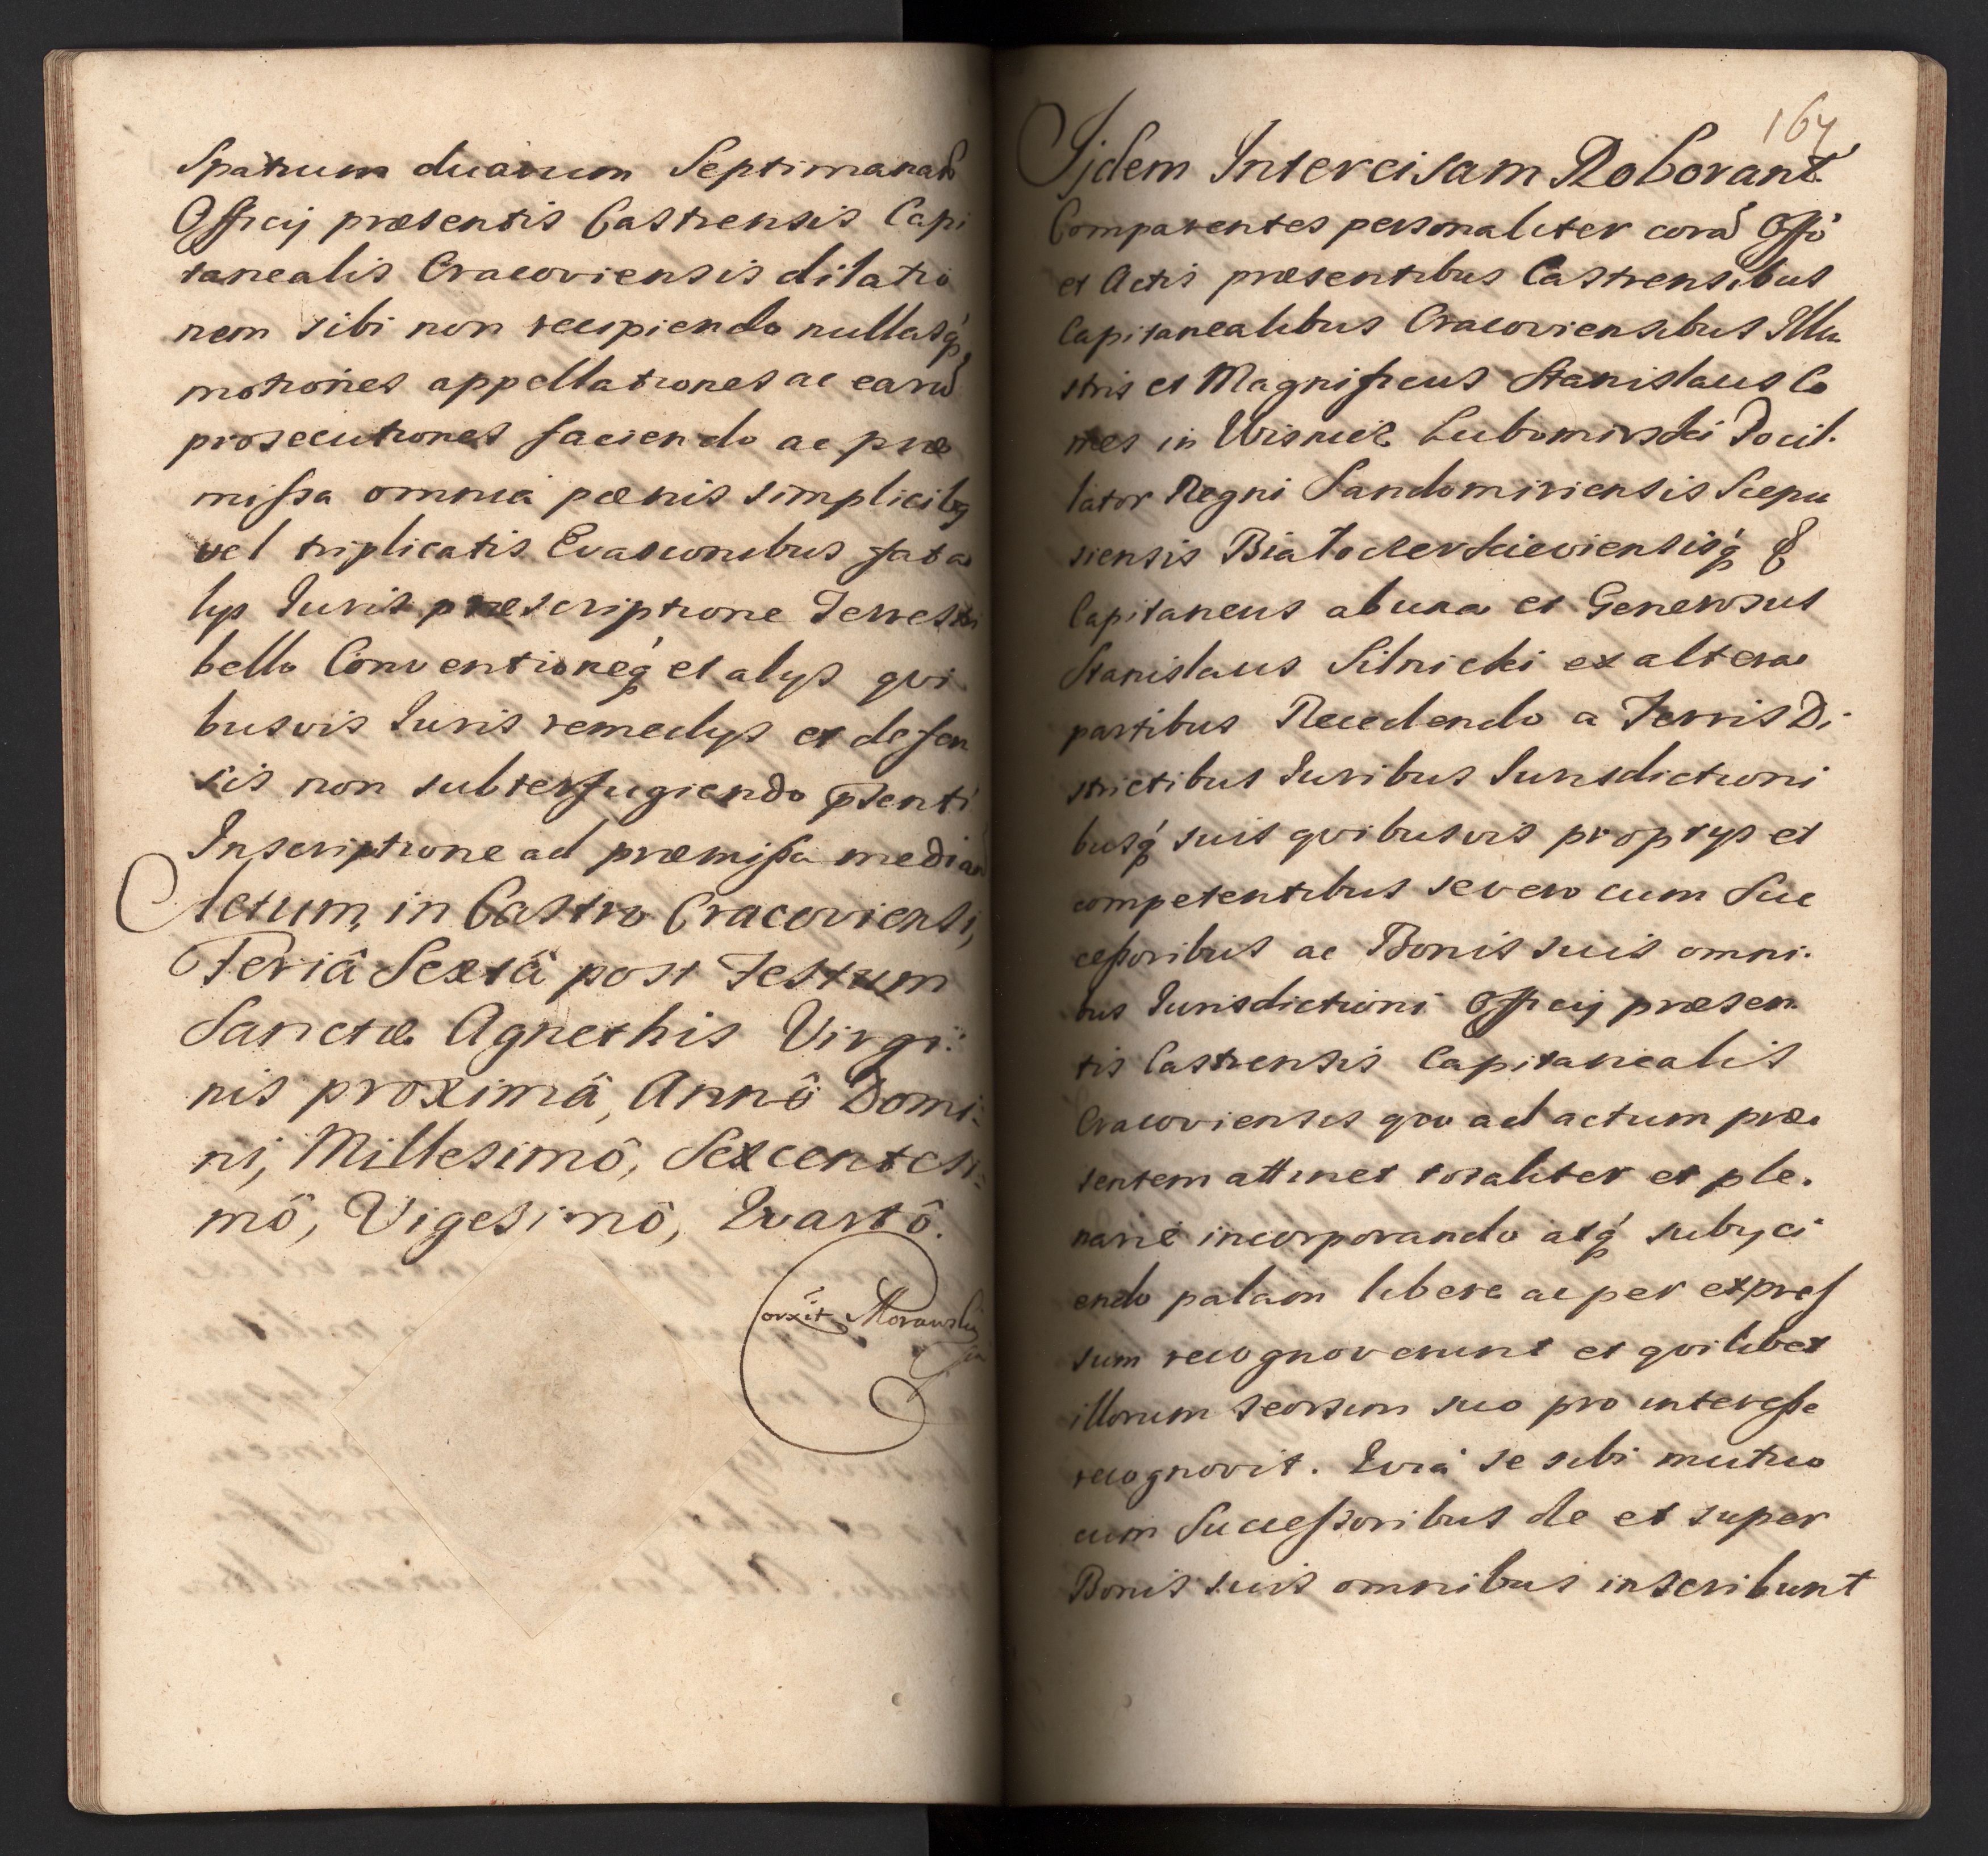 Spatium duarum Septimanarũ
Officij præsentis Castrensis Capi
tanealis Cracoviensis dilatio
nem sibi non recipiendo nullasq́
motiones appellationes ac earũ
prosecutiones faciendo ac præ
missa omnia pœnis simplicibq
vel triplicatis Evasionibus fata
lys Iuris præscriptione Terrestri
bello Conventioneq́ et alys qvi
busvis Iuris remedys et defen
sis non subterfugiendo p̃senti
Inscriptione ad præmissa median
Actum in Castro Cracoviensi,
Feriâ Sextâ post Festum
Sanctæ Agnethis Virgi:
nis proximâ, Annô Domi:
ni, Millesimô, Sexcentesi:
mô, Vigesimô, Qvartô.
Corxit Morawski
164
Ijdem Intercisam Roborant
Comparentes personaliter corã Offõ
et Actis præsentibus Castrensibus
Capitanealibus Cracoviensibus Illu
stris et Magnificus Stanislaus Co
mes in Wisnicz Lubomirski Pocil.
lator Regni Sandomiriensis Scepu
siensis Białocerkieviensisq́ &
Capitaneus ab una et Generosus
Stanislaus Silnicki ex altera
partibus Recedendo a Terris Di
strictibus Iuribus Iurisdictioni
busq́ suis qvibusvis proprys et
competentibus se vero cum Suc
cessoribus ac Bonis suis omni.
bus Iurisdictioni Officij præsen
tis Castrensis Capitanealis
Cracoviensis qvo ad actum præ
sentem attinet totaliter et ple.
narie incorporando atq́ subyci
endo palam libere ac per expres
sum recognoverunt et qvilibet
illorum seorsim suo pro interesse
recognovit. Qvia se sibi mutuo
cum Successoribus de et super
Bonis suis omnibus inscribunt